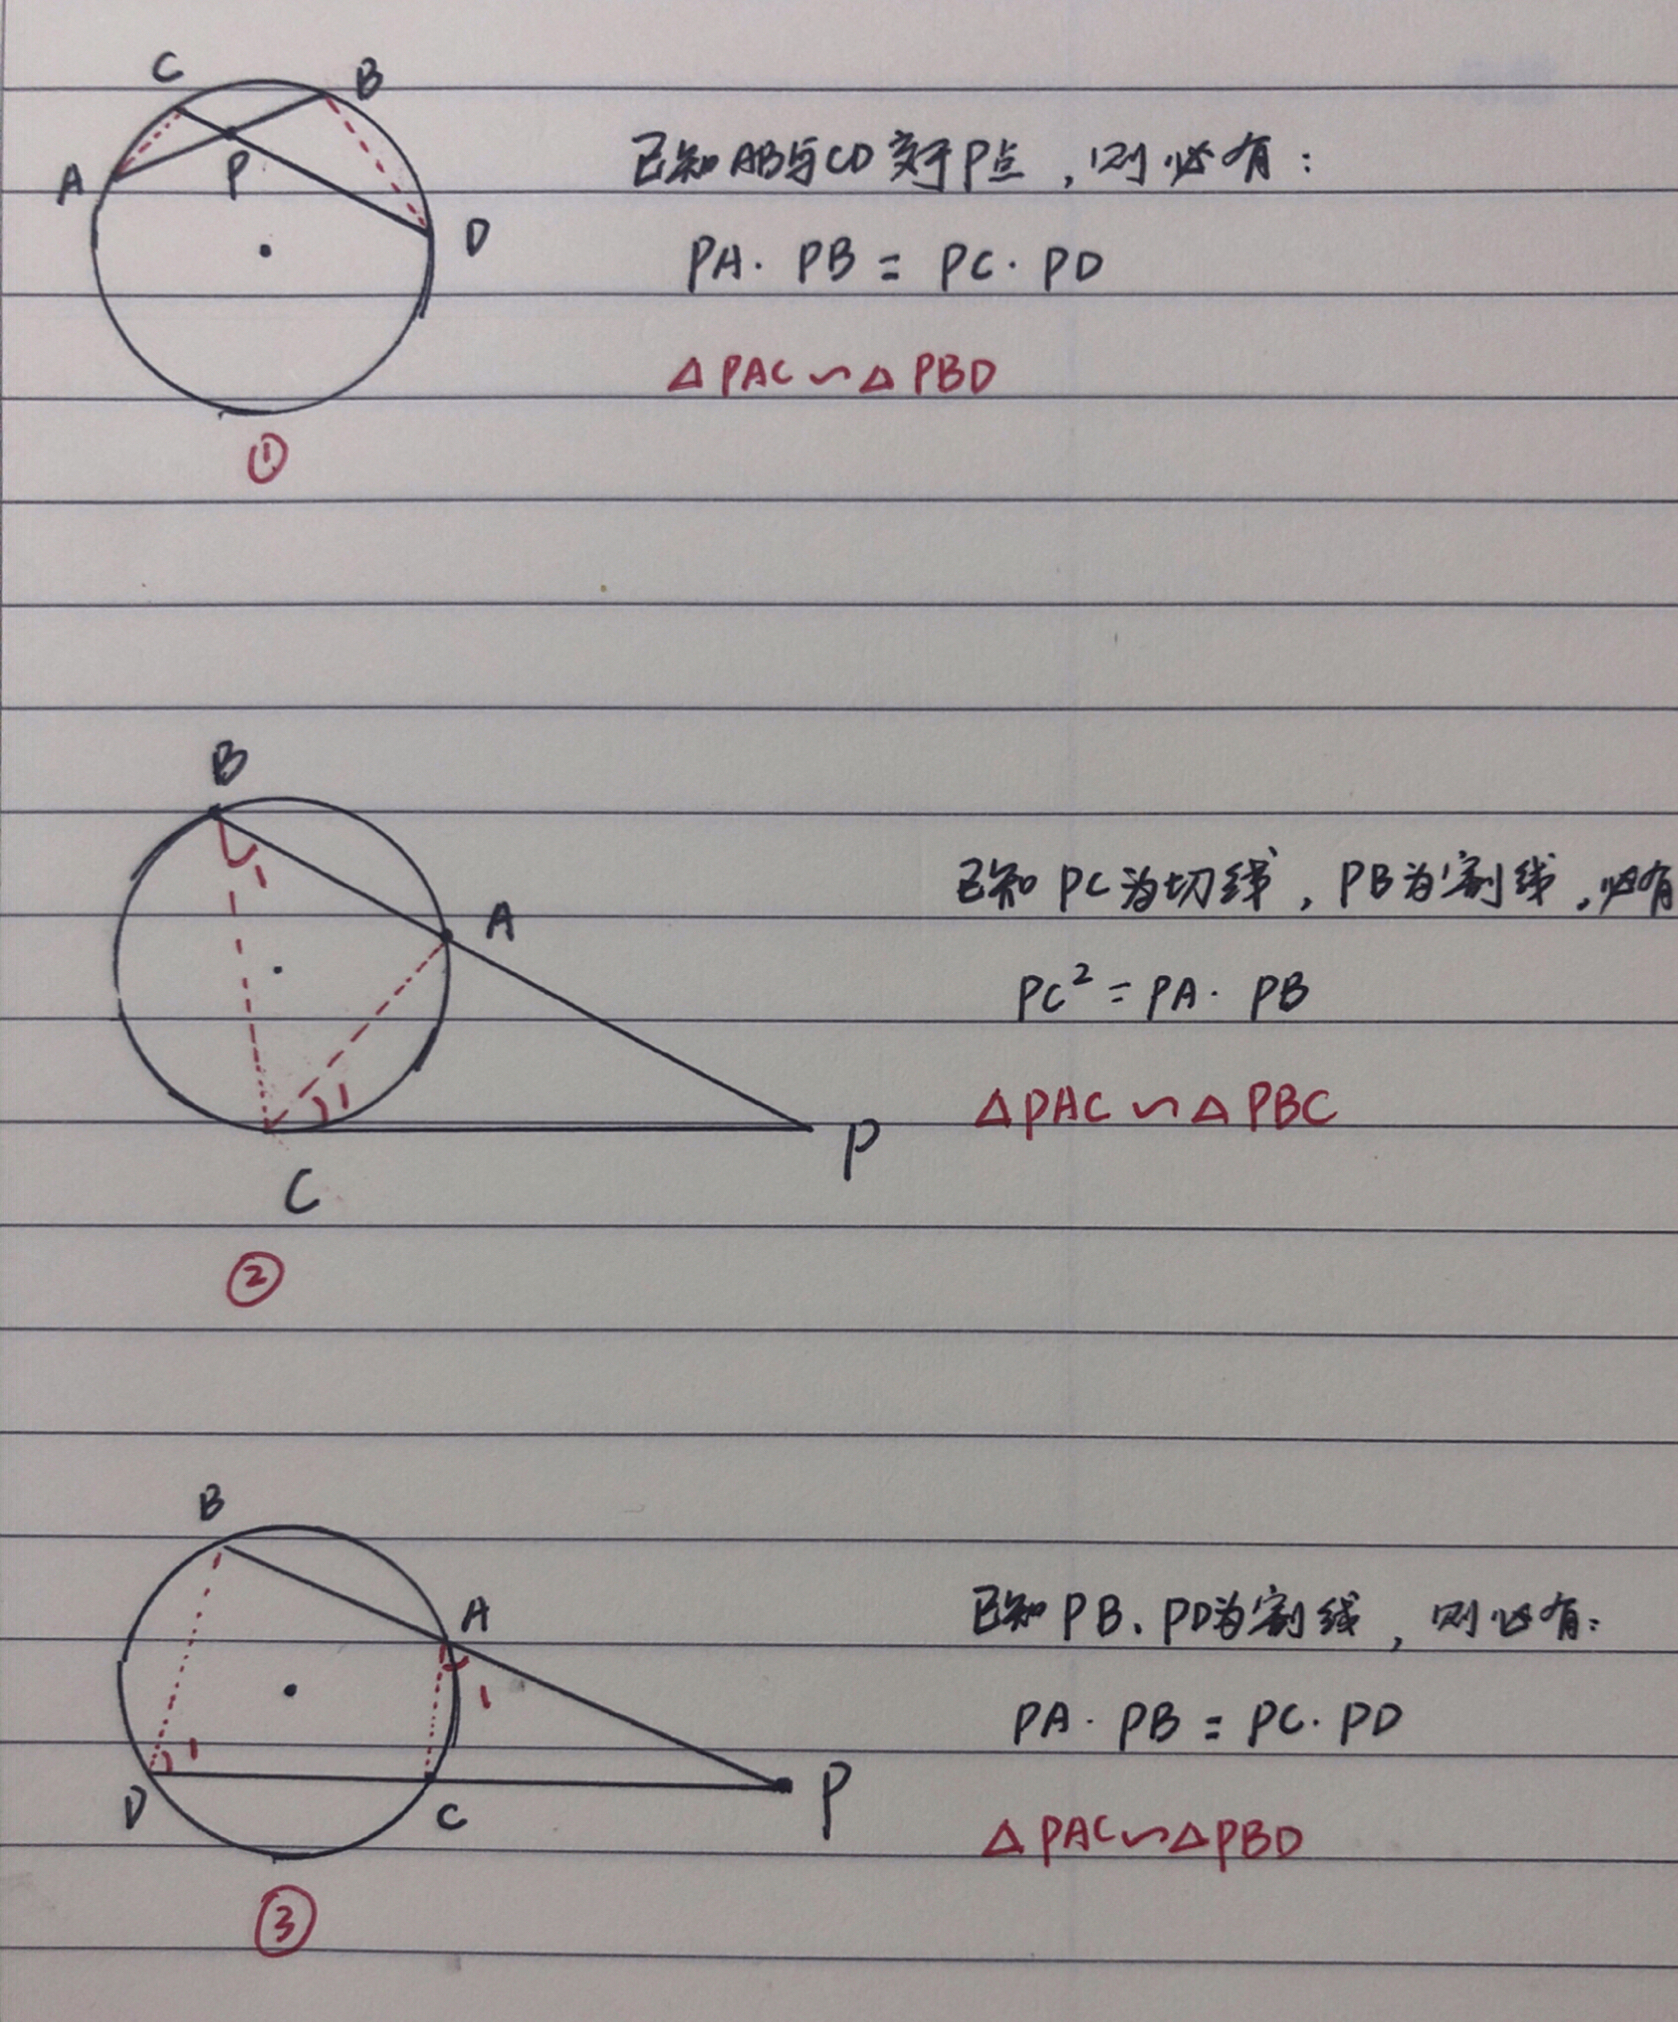 C B
已知AB与CD交于P点，则必有：
A P
D
PA·PB=PC·PD
△PAC∽△PBD
①
B
1
A
已知PC为切线，PB为割线，必有
PC²=PA·PB
1
△PAC∽△PBC
P
C
②
B
A
已知PB、PD为割线，则必有：
1
PA·PB=PC·PD
1
P
D C
△PAC∽△PBD
③